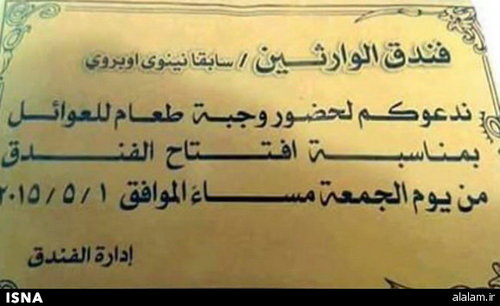 فندق الوارثين / سابقا نينوى اوبروي
ندعوكم لحضور وجبة طعام للعوائل
بمناسبة افتتاح الفندق
من يوم الجمعة مساءً الموافق ٢٠١٥/٥/١
إدارة الفندق
ISNA
alalam.ir